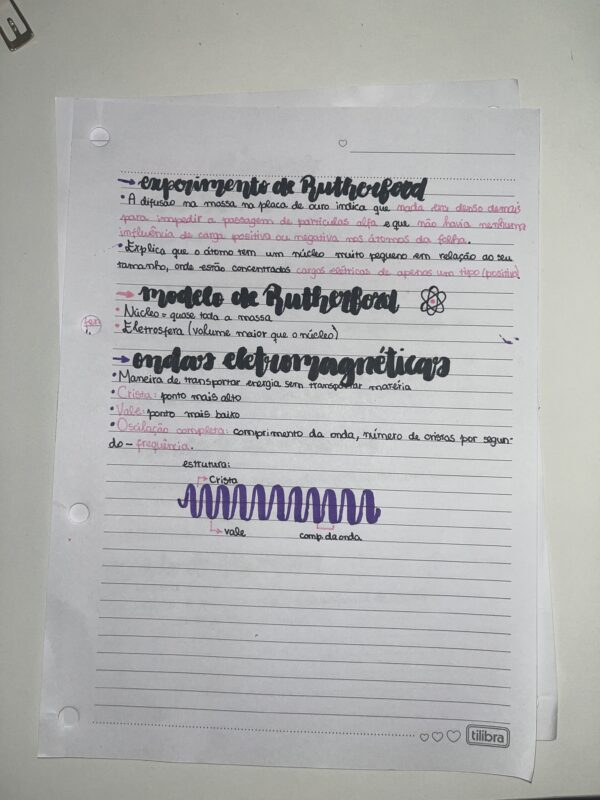 → experimento de Rutherford
• A difusão na massa na placa de ouro indica que nada era denso demais
para impedir a passagem de partículas alfa e que não havia nenhuma
influência de carga positiva ou negativa nos átomos da folha.
• Explica que o átomo tem um núcleo muito pequeno em relação ao seu
tamanho, onde estão concentrados cargas elétricas de apenas um tipo (positiva)
→ modelo de Rutherford
• Núcleo = quase toda a massa
• Eletrosfera (volume maior que o núcleo)
→ ondas eletromagnéticas
• Maneira de transportar energia sem transportar matéria
• Crista: ponto mais alto
• Vale: ponto mais baixo
• Oscilação completa: comprimento da onda, número de cristas por segun-
do - frequência.
estrutura:
Crista
vale
comp. da onda
tilibra